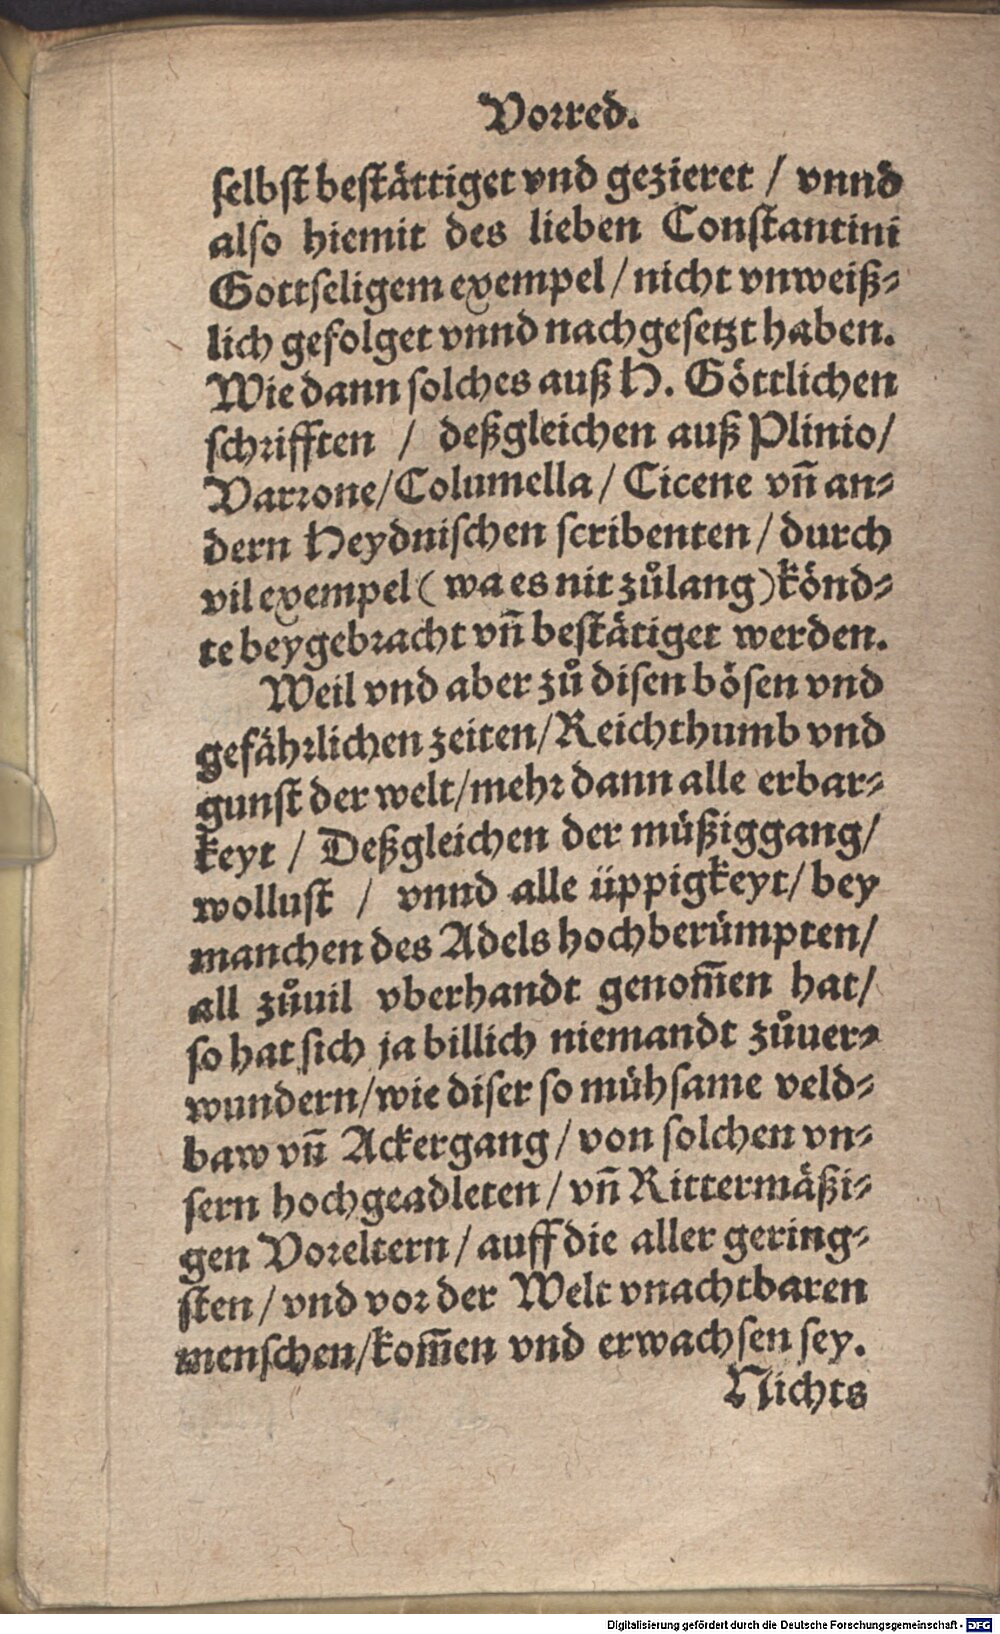 Vorred.
ſelbſt beſtättiget vnd gezieret / vnnd
alſo hiemit des lieben Conſtantini
Gottſeligem exempel / nicht vnweiß⸗
lich gefolget vnnd nachgeſetzt haben.
Wie dann ſolches auß H. Göttlichen
ſchꝛifften / deßgleichen auß Plinio /
Varꝛone / Columella / Cicene vn̄ an⸗
dern Heydniſchen ſcribenten / durch
vil exempel ( wa es nit zůlang ) könd⸗
te beygebꝛacht vn̄ beſtätiget werden.
Weil vnd aber zů diſen böſen vnd
gefähꝛlichen zeiten / Reichthumb vnd
gunſt der welt / mehꝛ dann alle erbar⸗
keyt / Deßgleichen der müßiggang /
wolluſt / vnnd alle üppigkeyt / bey
manchen des Adels hochberümpten /
all zůuil vberhandt genom̄en hat /
ſo hat ſich ja billich niemandt zůuer⸗
wundern / wie diſer ſo mühſame veld⸗
baw vn̄ Ackergang / von ſolchen vn⸗
ſern hochgeadleten / vn̄ Rittermäßi⸗
gen Voꝛeltern / auff die aller gering⸗
ſten / vnd voꝛ der Welt vnachtbaren
menſchen / kom̄en vnd erwachſen ſey.
Nichts
Digitalisierung gefördert durch die Deutsche Forschungsgemeinschaft - DFG